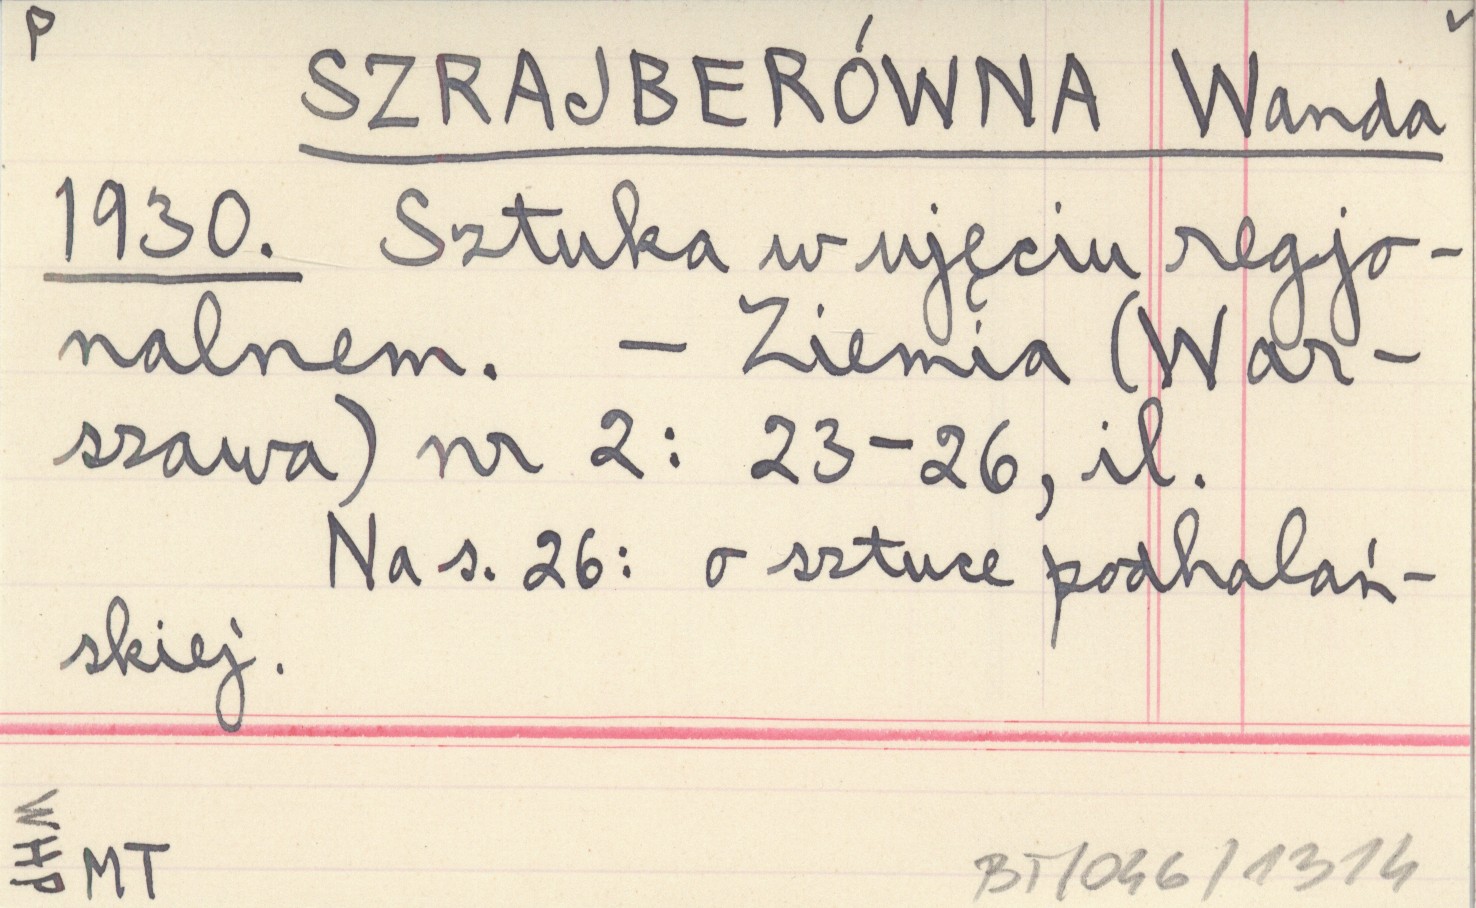 P
SZRAJBERÓWNA Wanda
1930. Sztuka w ujęciu regjo-
nalnem. — Ziemia (War-
szawa) nr 2: 23-26, il.
Na s. 26: o sztuce podhalań-
skiej.
WHP
MT
BT/046/1314